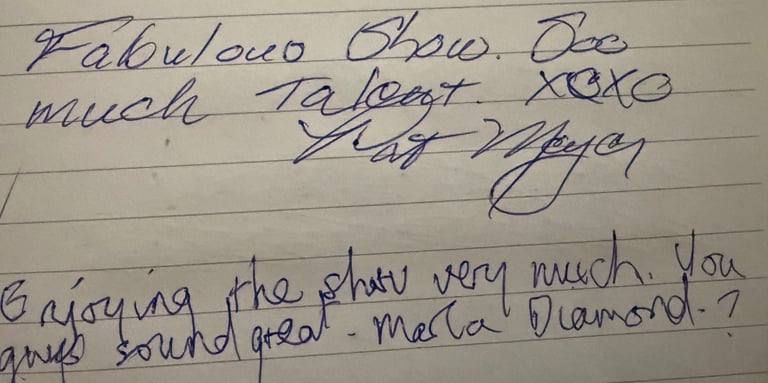 Fabulous Show. Soo
much Talent. XOXO
Pat Meyer
Enjoying the show very much. You
guys sound great - Marla Diamond.